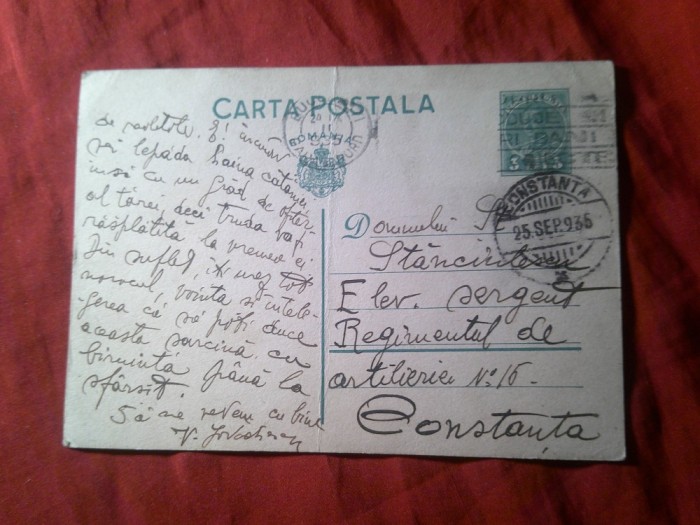 CARTA POSTALA
ROMANIA
CONSTANTA
25 SEP. 935
Domnului St.
Stănciulescu
Elev. sergent
Regimentul de
artilerie No. 16.
Constanța
de răsletele. Și
vă lepăda haina cătanei
însă cu un grad de ofițer
al țărei, deci truda va fi
răsplătită la vremea ei
Din suflet, îți urez tot
norocul, voința si înțele-
gerea că să poți duce
aceasta sarcină cu
biruință până la
sfârșit.
Să ne vedem cu bine